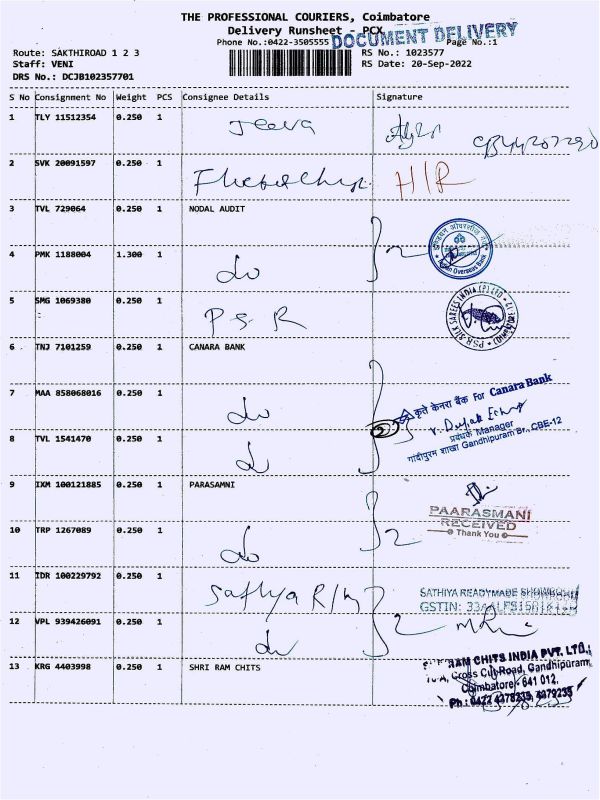 THE PROFESSIONAL COURIERS, Coimbatore
Delivery Runsheet - PCX
DOCUMENT DELIVERY
Phone No.:0422-3505555 Page No.:1
Route: SAKTHIROAD 1 2 3 RS No.: 1023577
Staff: VENI RS Date: 20-Sep-2022
DRS No.: DCJB102357701
S No Consignment No Weight PCS Consignee Details Signature
1 TLY 11512354 0.250 1 Jeeva
2 SVK 20091597 0.250 1 H/R
3 TVL 729064 0.250 1 NODAL AUDIT
Indian Overseas Bank
4 PMK 1188004 1.300 1 do 2
5 SMG 1069380 0.250 1 P S R
PSR SILK SAREES INDIA (P) LTD
6 TNJ 7101259 0.250 1 CANARA BANK
7 MAA 858068016 0.250 1 do
कृते केनरा बैंक For Canara Bank
8 TVL 1541470 0.250 1 do
प्रबंधक Manager
गांधीपुरम शाखा Gandhipuram Br., CBE-12
9 IXM 100121885 0.250 1 PARASAMNI
PAARASMANI
RECEIVED
Thank You
10 TRP 1267089 0.250 1 do 2
11 IDR 100229792 0.250 1 Sathya R/M
SATHIYA READYMADE
GSTIN:
12 VPL 939426091 0.250 1 do 2
13 KRG 4403998 0.250 1 SHRI RAM CHITS
RAM CHITS INDIA PVT. LTD.,
Cross Cut Road, Gandhipuram,
Coimbatore - 641 012.
Ph : 0422 4378235, 4379235